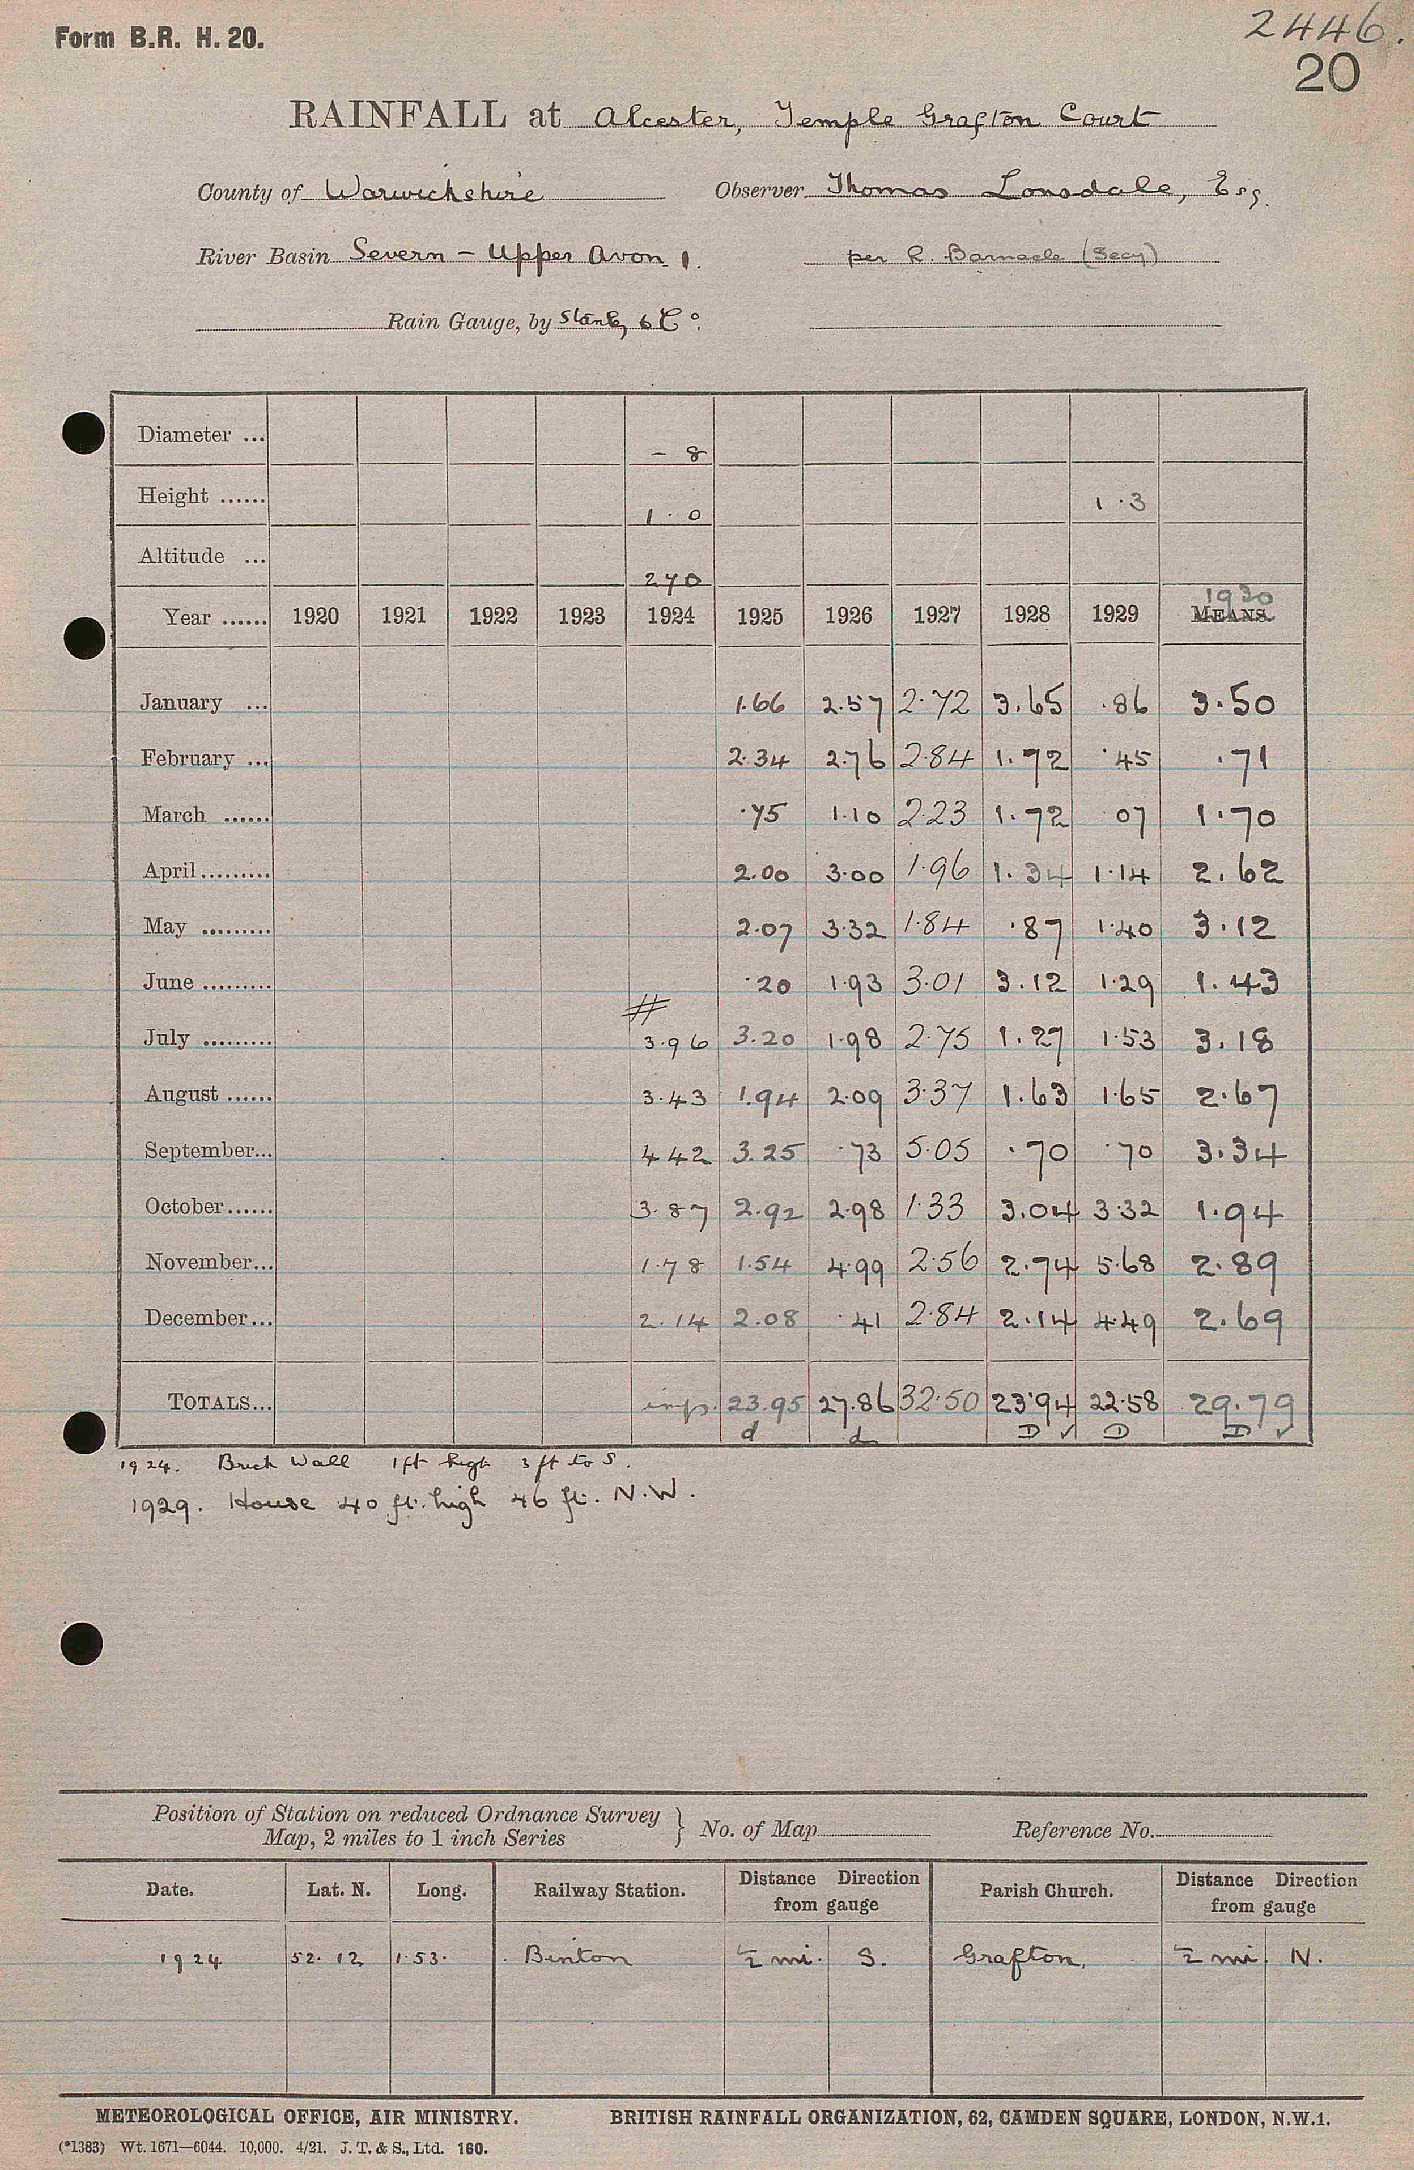 Form B.R. H. 20.
2446.
20
RAINFALL at Alcester, Temple Grafton Court
County of Warwickshire Observer Thomas Lonsdale, Esq.
River Basin Severn - Upper Avon 1. per R. Barnacle (Secy)
Rain Gauge, by Stanley & Co.
Diameter ... - 8
Height ...... 1 . 0 1 . 3
Altitude ... 270
1930
Year ...... 1920 1921 1922 1923 1924 1925 1926 1927 1928 1929 MEANS.
January ... 1.66 2.57 2.72 3.65 .86 3.50
February ... 2.34 2.76 2.84 1.72 .45 .71
March ...... .75 1.10 2.23 1.72 07 1.70
April ......... 2.00 3.00 1.96 1.34 1.14 2.62
May ......... 2.07 3.32 1.84 .87 1.40 3.12
June ......... .20 1.93 3.01 3.12 1.29 1.43
#
July ......... 3.96 3.20 1.98 2.75 1.27 1.53 3.18
August ...... 3.43 1.94 2.09 3.37 1.63 1.65 2.67
September... 4 42 3.25 .73 5.05 .70 .70 3.34
October ...... 3.87 2.92 2.98 1.33 3.04 3.32 1.94
November... 1.78 1.54 4.99 2.56 2.74 5.68 2.89
December... 2.14 2.08 .41 2.84 2.14 4.49 2.69
TOTALS... imp. 23.95 27.86 32.50 23.94 22.58 29.79
d d D ✓ D D ✓
1924. Brick Wall 1 ft high 3 ft to S.
1929. House 40 ft. high 46 ft. N.W.
Position of Station on reduced Ordnance Survey
Map, 2 miles to 1 inch Series } No. of Map Reference No.
Date. Lat. N. Long. Railway Station. Distance Direction from gauge Parish Church. Distance Direction from gauge
1924 52. 12 1.53. Binton ½ mi. S. Grafton, ½ mi N.
METEOROLOGICAL OFFICE, AIR MINISTRY. BRITISH RAINFALL ORGANIZATION, 62, CAMDEN SQUARE, LONDON, N.W.1.
(*1383) Wt. 1671—6044. 10,000. 4/21. J. T. & S., Ltd. 160.